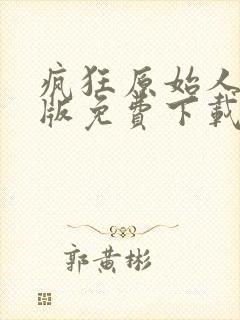 疯狂原始人
版免费下载
郭黄彬